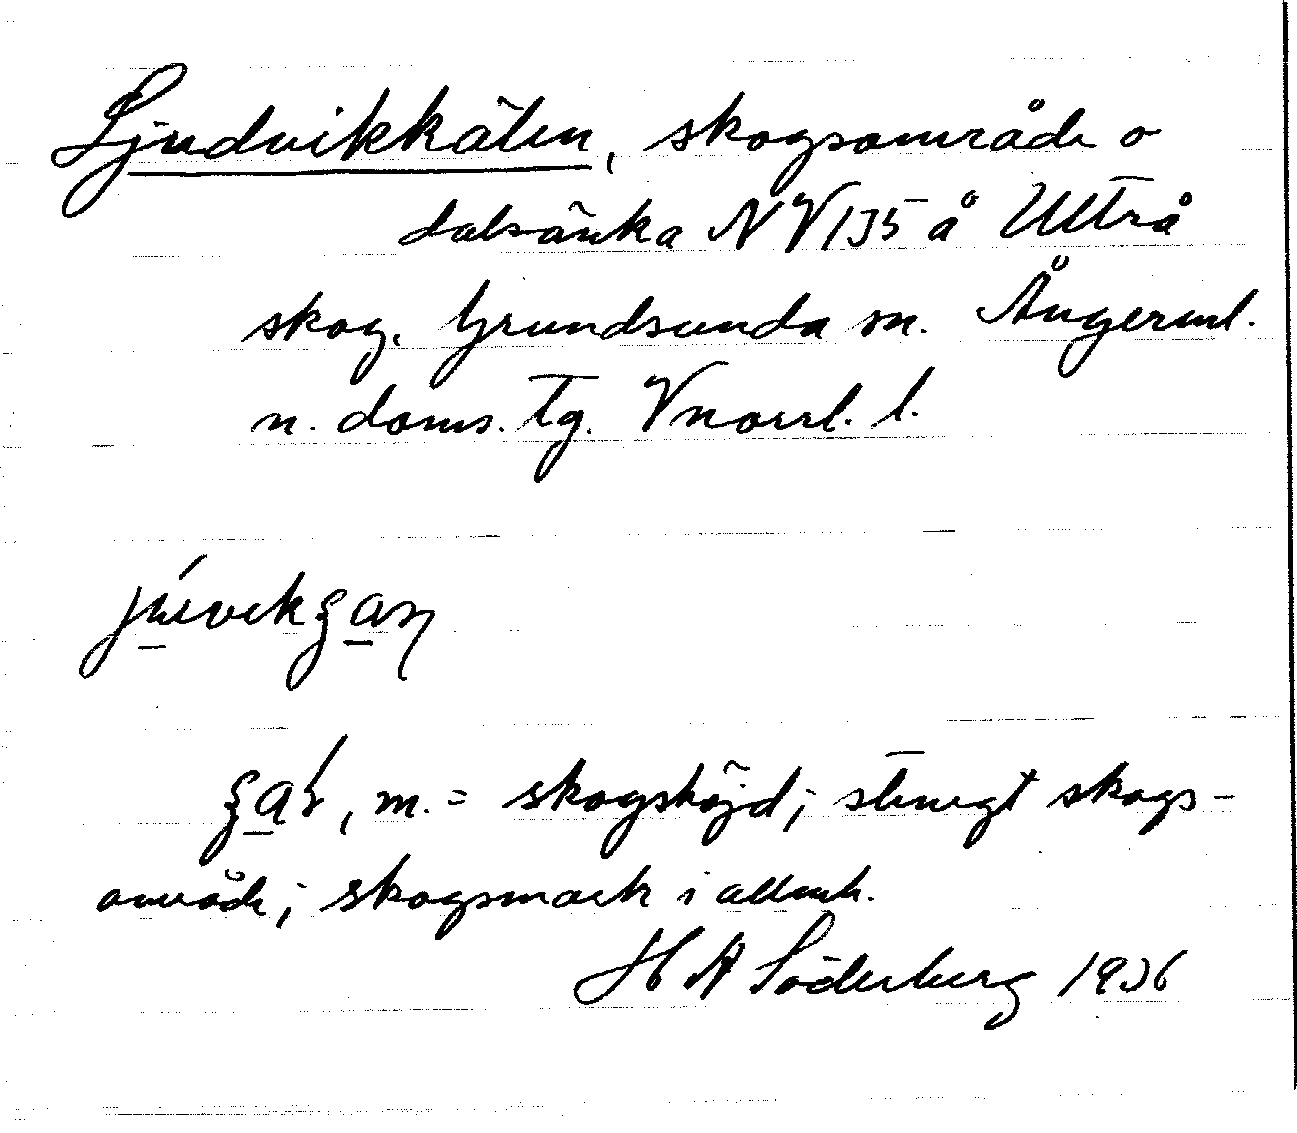 Ljudvikkälen, skogsområde o
dalsänka NV 135 å Utterå
skog. Grundsunda sn. Ångerml.
n. doms. tg. Vnorrl. l.
, m. = skogshöjd; stenigt skogs-
område; skogsmark i allmh.
H A Söderberg 1936